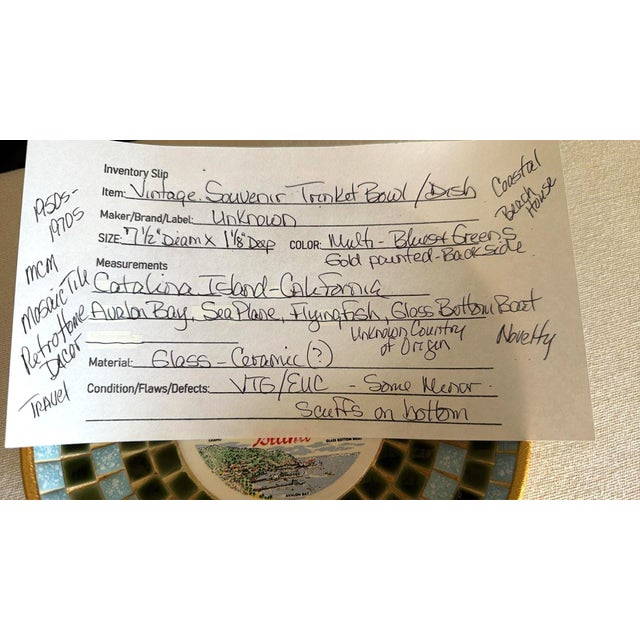 Inventory Slip
Item: Vintage Souvenir Trinket Bowl/Dish
Maker/Brand/Label: Unknown
SIZE: 7 1/2" Diam X 1 1/8" Deep COLOR: Multi - Blues + Greens
Gold painted - Backside
Measurements
Catalina Island - California
Avalon Bay, Sea Plane, Flying Fish, Glass Bottom Boat
Unknown Country
of Origin
Material: Glass - Ceramic (?)
Condition/Flaws/Defects: VTG/EUC - Some Minor
Scuffs on bottom
1950s-
1970s
MCM
Mosaic Tile
Retro Home
Decor
Travel
Coastal
Beach
House
Novelty
Island
GLASS BOTTOM BOAT
AVALON BAY